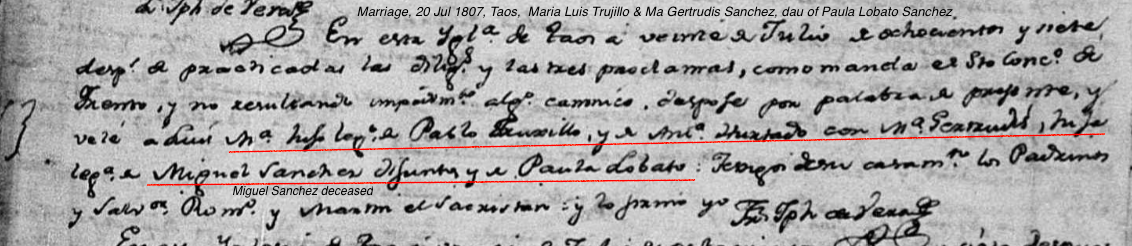 de Jph de Vera
Marriage, 20 Jul 1807, Taos, Maria Luis Trujillo & Ma Gertrudis Sanchez, dau of Paula Lobato Sanchez
En esta Ygla. de Taos a veinte de Julio de ochocientos y siete,
desps. de practicadas las diligs. y las tres proclamas, como manda el Sto Conco. de
Trento, y no resultando impedimto. algo. canonico, despose por palabra de presente, y
velé a Luis Ma. hijo lego. de Pablo Truxillo, y de Anta. Hurtado con Ma. Gertrudis, hija
lega. de Miguel Sanchez difunto y de Paula Lobato. Testigos de su casamto. los Padrinos
Miguel Sanchez deceased
y Salvor. Romo. y Martin el Sacristan: y lo firmo yo Fr. Jph de Vera
En